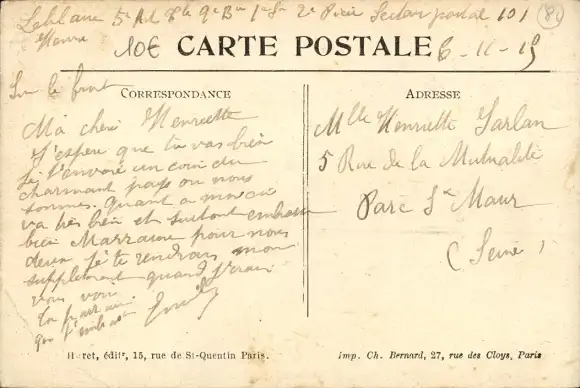 Leblanc 5e Art 2e Pièce Secteur postal 101
84
10€
CARTE POSTALE
6-11-15
Sur le front
CORRESPONDANCE
ADRESSE
Ma cherie Henriette
J'espere que tu vas bien
Je t'envoie un coin du
charmant pays ou nous
sommes. quant a moi ca
va très bien et surtout embrasse
bien Marraine pour nous
deux je te rendrais mon
supplement quand j'irai
vous voir
Ton parrain
qui t'embrasse
Emile
Mlle Henriette Sarlan
5 Rue de la Mutualité
Parc St Maur
(Seine)
H ret, édit', 15, rue de St-Quentin Paris.
Imp. Ch. Bernard, 27, rue des Cloys, Paris